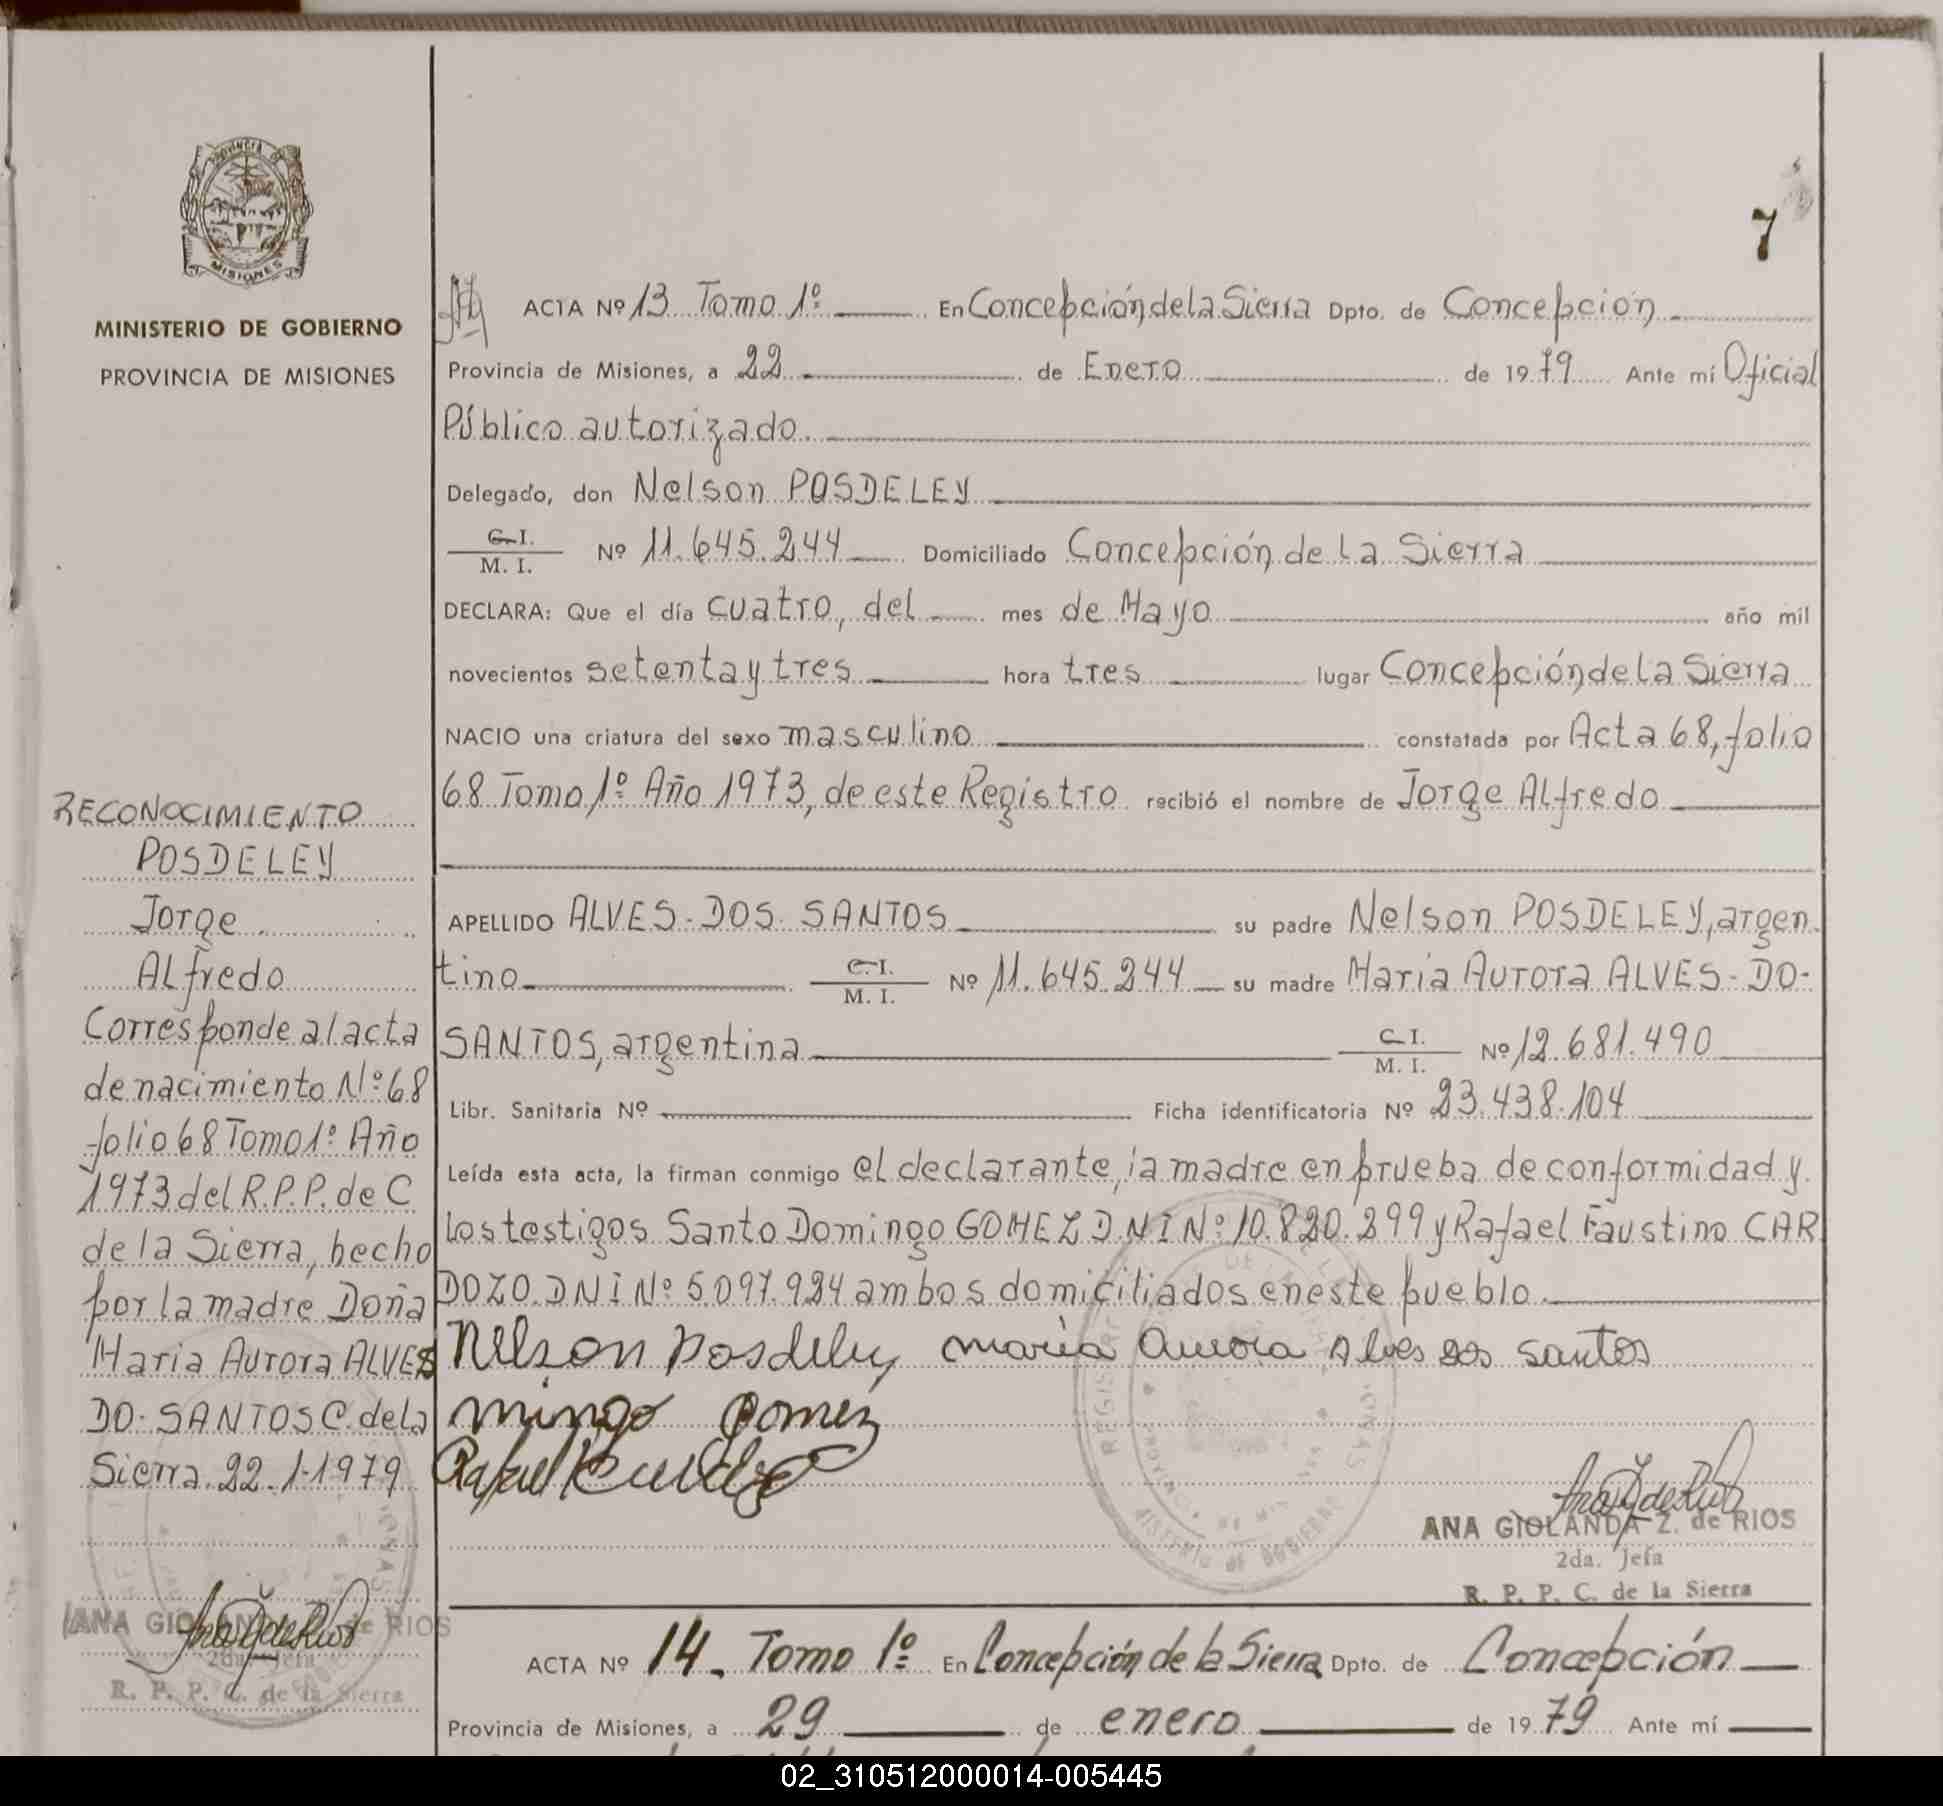 7
PROVINCIA DE
MISIONES
MINISTERIO DE GOBIERNO
PROVINCIA DE MISIONES
RECONOCIMIENTO
POSDELEY
Jorge
Alfredo
Corresponde al acta
de nacimiento Nº 68
folio 68 Tomo 1º Año
1973 del R.P.P. de C
de la Sierra, hecho
por la madre Doña
Maria Aurora ALVES
DO-SANTOS C. de la
Sierra 22-1-1979
ANA GIOLANDA Z. de RIOS
2da. Jefa
R. P. P. C. de la Sierra
ACTA Nº 13 Tomo 1º En Concepción de la Sierra Dpto. de Concepción
Provincia de Misiones, a 22 de Enero de 1979 Ante mí Oficial
Público autorizado.
Delegado, don Nelson POSDELEY
C.I. / M.I. Nº 11.645.244 Domiciliado Concepción de la Sierra
DECLARA: Que el día cuatro, del mes de Mayo año mil
novecientos setenta y tres hora tres lugar Concepción de la Sierra
NACIO una criatura del sexo masculino constatada por Acta 68, folio
68 Tomo 1º Año 1973, de este Registro recibió el nombre de Jorge Alfredo
APELLIDO ALVES-DOS SANTOS su padre Nelson POSDELEY, argen
tino C.I. / M.I. Nº 11.645.244 su madre Maria Aurora ALVES-DO-
SANTOS, argentina C.I. / M.I. Nº 12.681.490
Libr. Sanitaria Nº Ficha identificatoria Nº 23.438.104
Leída esta acta, la firman conmigo el declarante, la madre en prueba de conformidad y
los testigos Santo Domingo GOMEZ DNI Nº 10.820.299 y Rafael Faustino CAR
DOZO DNI Nº 5.097.924 ambos domiciliados en este pueblo.
Nelson Posdeley maria Aurora Alves dos santos
mingo gomez
Rafael
ANA GIOLANDA Z. de RIOS
2da. Jefa
R. P. P. C. de la Sierra
ACTA Nº 14. Tomo 1º En Concepción de la Sierra Dpto. de Concepción
Provincia de Misiones, a 29 de enero de 1979 Ante mí
02_310512000014-005445